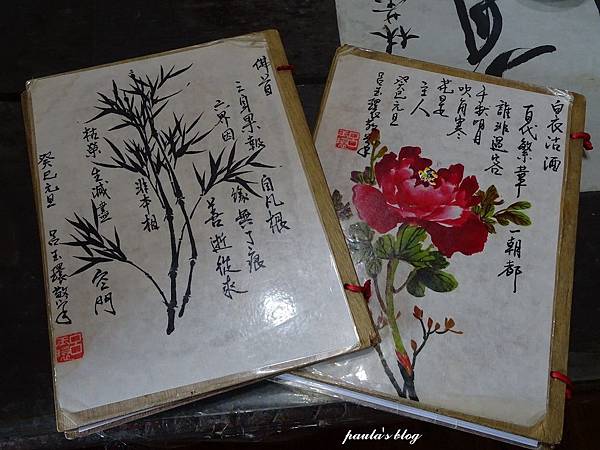 佛首
三身果報自凡根
六界因緣無了痕
善逝從求
非本相
枯榮生滅盡空門
癸巳元旦
呂玉環敬筆
白衣沽酒
百代繁華一朝都
誰非過客
千秋明月
吹角寒
花是
主人
癸巳元旦
呂玉環敬筆
paula's blog